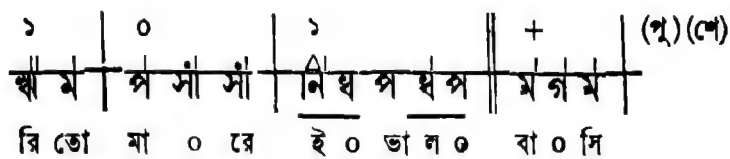 ১ ০ ১ + (পূ) (শে)
ধা ম প র্সা র্সা নি ধ প ধ প ম গ ম
রি তো মা ০ রে ই ০ ভা ল ০ বা ০ সি